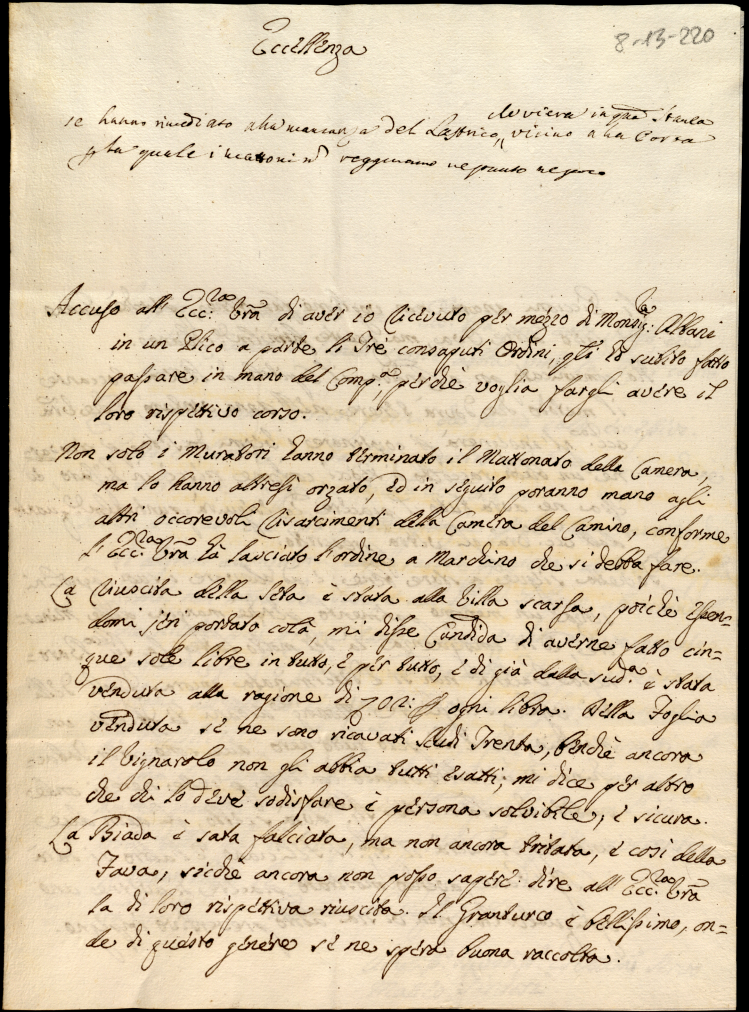 8-13-220
Eccellenza
se hanno rimediato alla mancanza del Lastrico, vicino alla Porta
che viera in qua Stanza
p la quale i mattoni nō reggevano ne punto ne poco
Accuso all' Ecc:za Vrā di aver io ricevuto per mezzo di Monsig:r Albani
in un Plico a parte li Tre consaputi Ordini, gli hò subito fatto
passare in mano del Comp.e, perchè voglia fargli avere il
loro rispettivo corso.
Non solo i Muratori hanno terminato il Mattonato della Camera,
ma lo hanno altresì orzato, ed in seguito poranno mano agli
altri occorevoli risarcimenti della Camera del Camino, conforme
l' Ecc:za Vrā hà lasciato l'ordine a Marchino che si debba fare.
La riuscita della Seta è stata alla Villa scarsa, poichè essen=
domi jeri portato colà, mi disse Candida di averne fatto cin=
que sole libre in tutto, e per tutto, e di già dalla sud.a è stata
venduta alla ragione di ogni libra. Della Foglia
venduta se ne sono ricavati Scudi Trenta, benchè ancora
il Vignarolo non gli abbia tutti esatti; mi dice per altro
che chi lo deve sodisfare è persona solvibile, e sicura.
La Biada è sata falciata, ma non ancora tritata, e così della
Fava, sicchè ancora non posso sapere: dire all' Ecc:za Vrā
la di loro rispettiva riuscita. Il Granturco è bellissimo, on=
de di questo genere se ne spera buona raccolta.